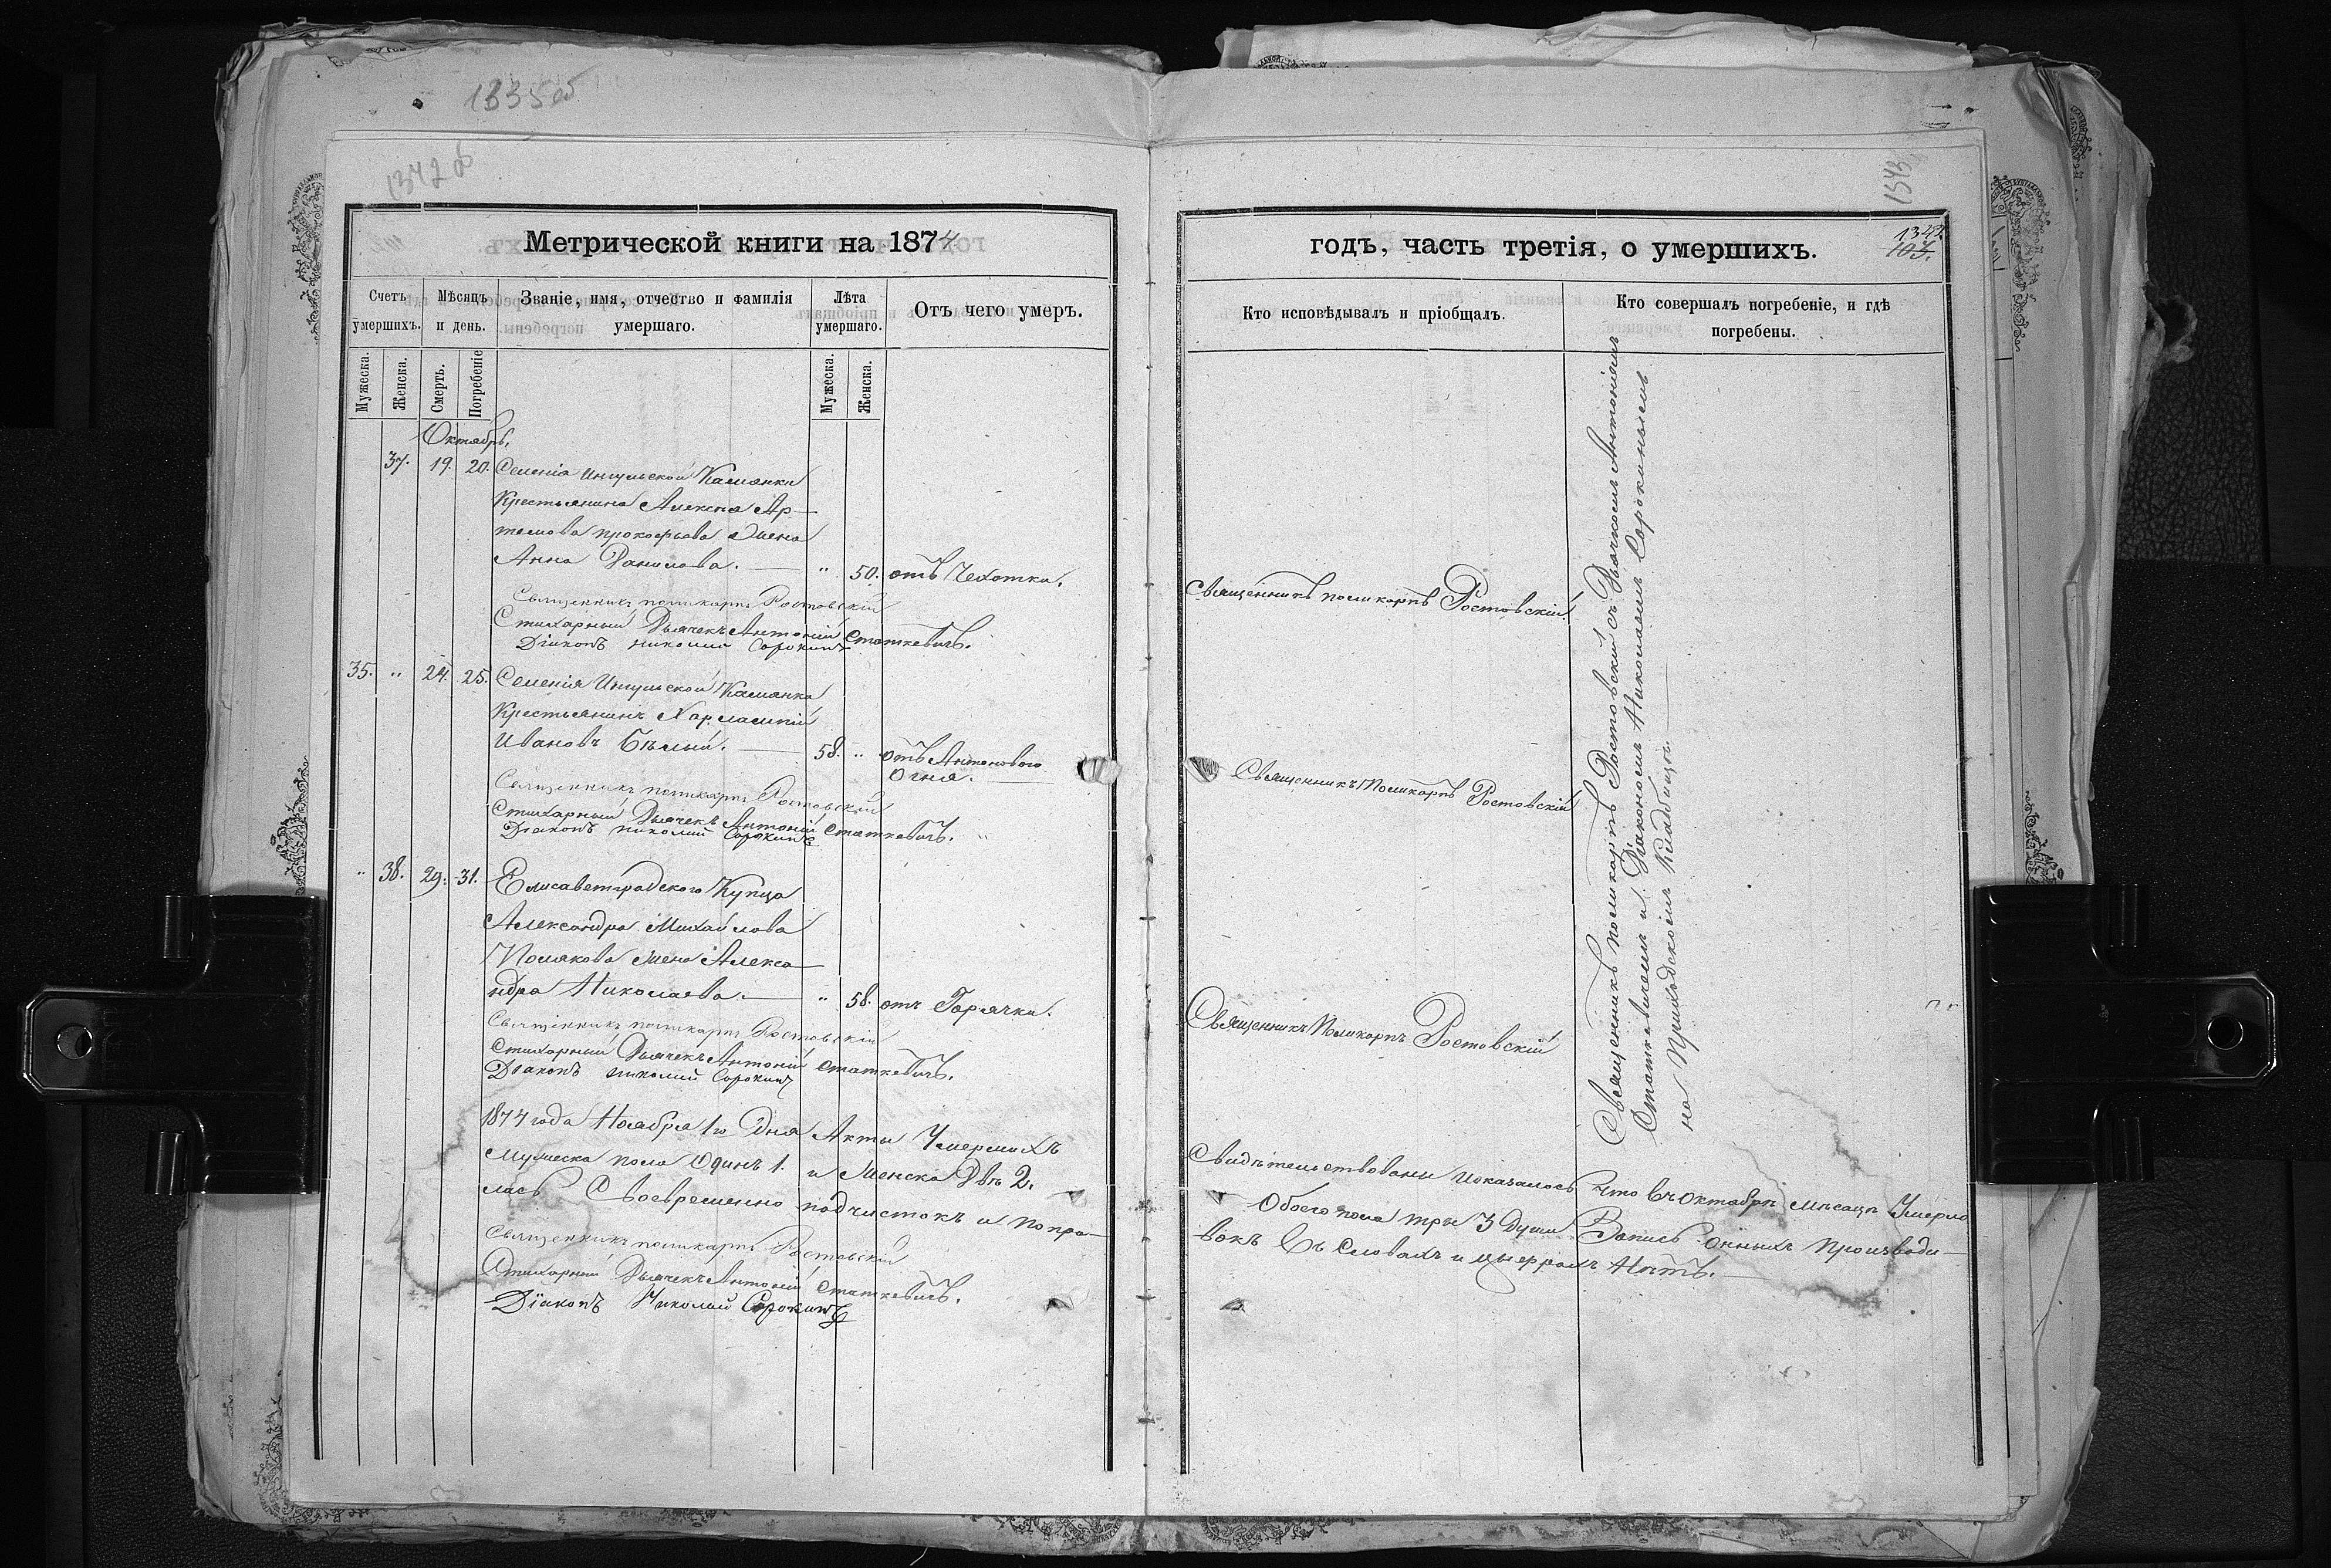 1335 об
1342 об
1343
Метрической книги на 1874
годъ, часть третія, о умершихъ.
1342
103.
Счетъ умершихъ.
Мѣсяцъ и день.
Званіе, имя, отчество и фамилія умершаго.
Лѣта умершаго.
Отъ чего умеръ.
Кто исповѣдывалъ и пріобщалъ.
Кто совершалъ погребеніе, и гдѣ погребены.
Мужеска.
Женска.
Смерть.
Погребеніе
Мужеска.
Женска.
Октябрь,
37. 19. 20. Селенія Ингульской Камянки
Крестьянина Алексея Ар-
темова Прокофьева жена
Анна Данилова. — " 50. отъ Чехотки.
Священникъ Поликарпъ Ростовскій
Стихарный Дьячекъ Антоній Статкевичъ.
Діаконъ Николай Сорокинъ
Священникъ Поликарпъ Ростовскій.
35. " 24. 25. Селенія Ингульской Камянки
Крестьянинъ Харлампій
Ивановъ Бѣлый. — 58. " отъ Антонового
Огня.
Священникъ Поликарпъ Ростовскій
Стихарный Дьячекъ Антоній Статкевичъ.
Діаконъ Николай Сорокинъ
Священникъ Поликарпъ Ростовскій
" 38. 29. 31. Елисаветградского Купца
Александра Михайлова
Полякова жена Алекса-
ндра Николаева. — " 58. отъ Горячки.
Священникъ Поликарпъ Ростовскій
Стихарный Дьячекъ Антоній Статкевичъ.
Діаконъ Николай Сорокинъ
Священникъ Поликарпъ Ростовскій
Священникъ Поликарпъ Ростовскій съ Дьячкомъ Антоніемъ
Статкевичемъ и Діакономъ Николаемъ Сорокинымъ
на Приходскомъ Кладбищѣ.
1874 года Ноября 1го Дня Акты Умершихъ Свидѣтельствованы и оказалось что въ Октябрѣ мѣсяцѣ Умерло
Мужеска пола Одинъ 1. и Женска Двѣ 2. Обоего пола три 3 души Запись онныхъ производи-
лась Своевременно подчистокъ и попра-
вокъ Въ Словахъ и цыфрахъ Нѣтъ. —
Священникъ Поликарпъ Ростовскій
Стихарный Дьячекъ Антоній Статкевичъ.
Діаконъ Николай Сорокинъ